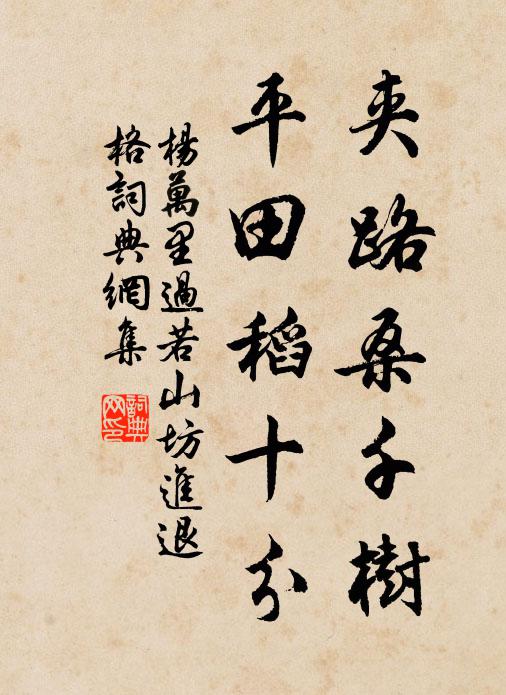 夹路桑千樹
平田稻十分
楊萬里過若山坊進退
格詞典網集
詞典
网印